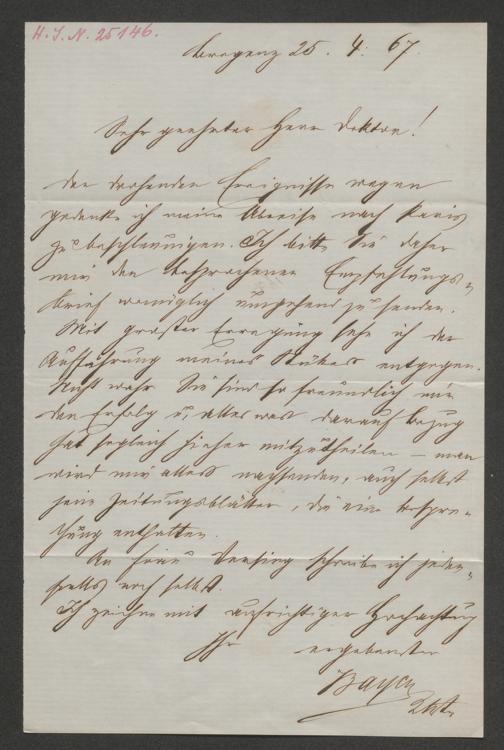 H. I. N. 25146.
Bregenz 25. 4. 67.
Sehr geehrter Herr Doktor!
Der drohenden Ereignisse wegen
gedenke ich meine Abreise nach Paris
zu beschleunigen. Ich bitte Sie daher
mir den besprochenen Empfehlungs-
brief womöglich umgehend zu senden.
Mit großer Erregung sehe ich der
Aufführung meines Stückes entgegen.
Nicht wahr Sie sind so freundlich mir
den Erfolg u. alles was darauf Bezug
hat sogleich hieher mitzutheilen – man
wird mir alles nachsenden, auch selbst
jene Zeitungsblätter, die eine Bespre-
chung enthalten.
An Frau Versing schreibe ich jeden-
falls noch selbst.
Ich zeichne mit aufrichtiger Hochachtung
Ihr ergebenster